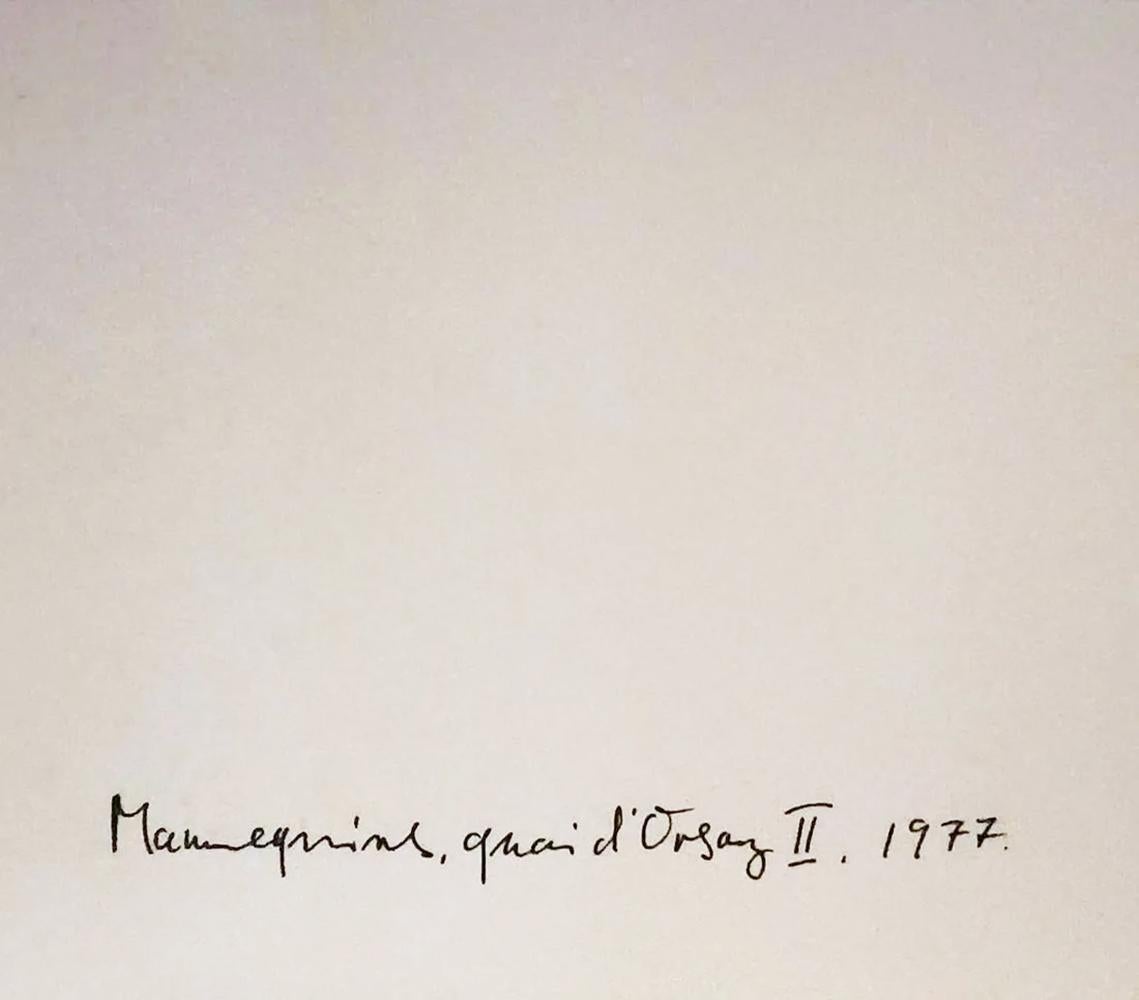 Mannequins, quai d'Orsay II. 1977.